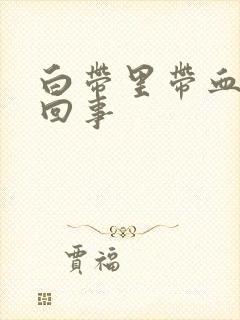 白带里带血
回事
贾福